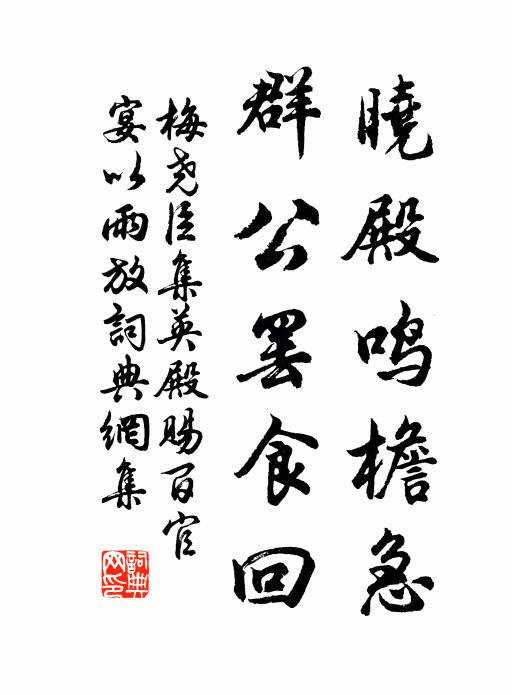 曉殿鸣檐急
群公罢食回
梅尧臣集英殿賜百官
宴以雨放詞典網集
詞典
网印